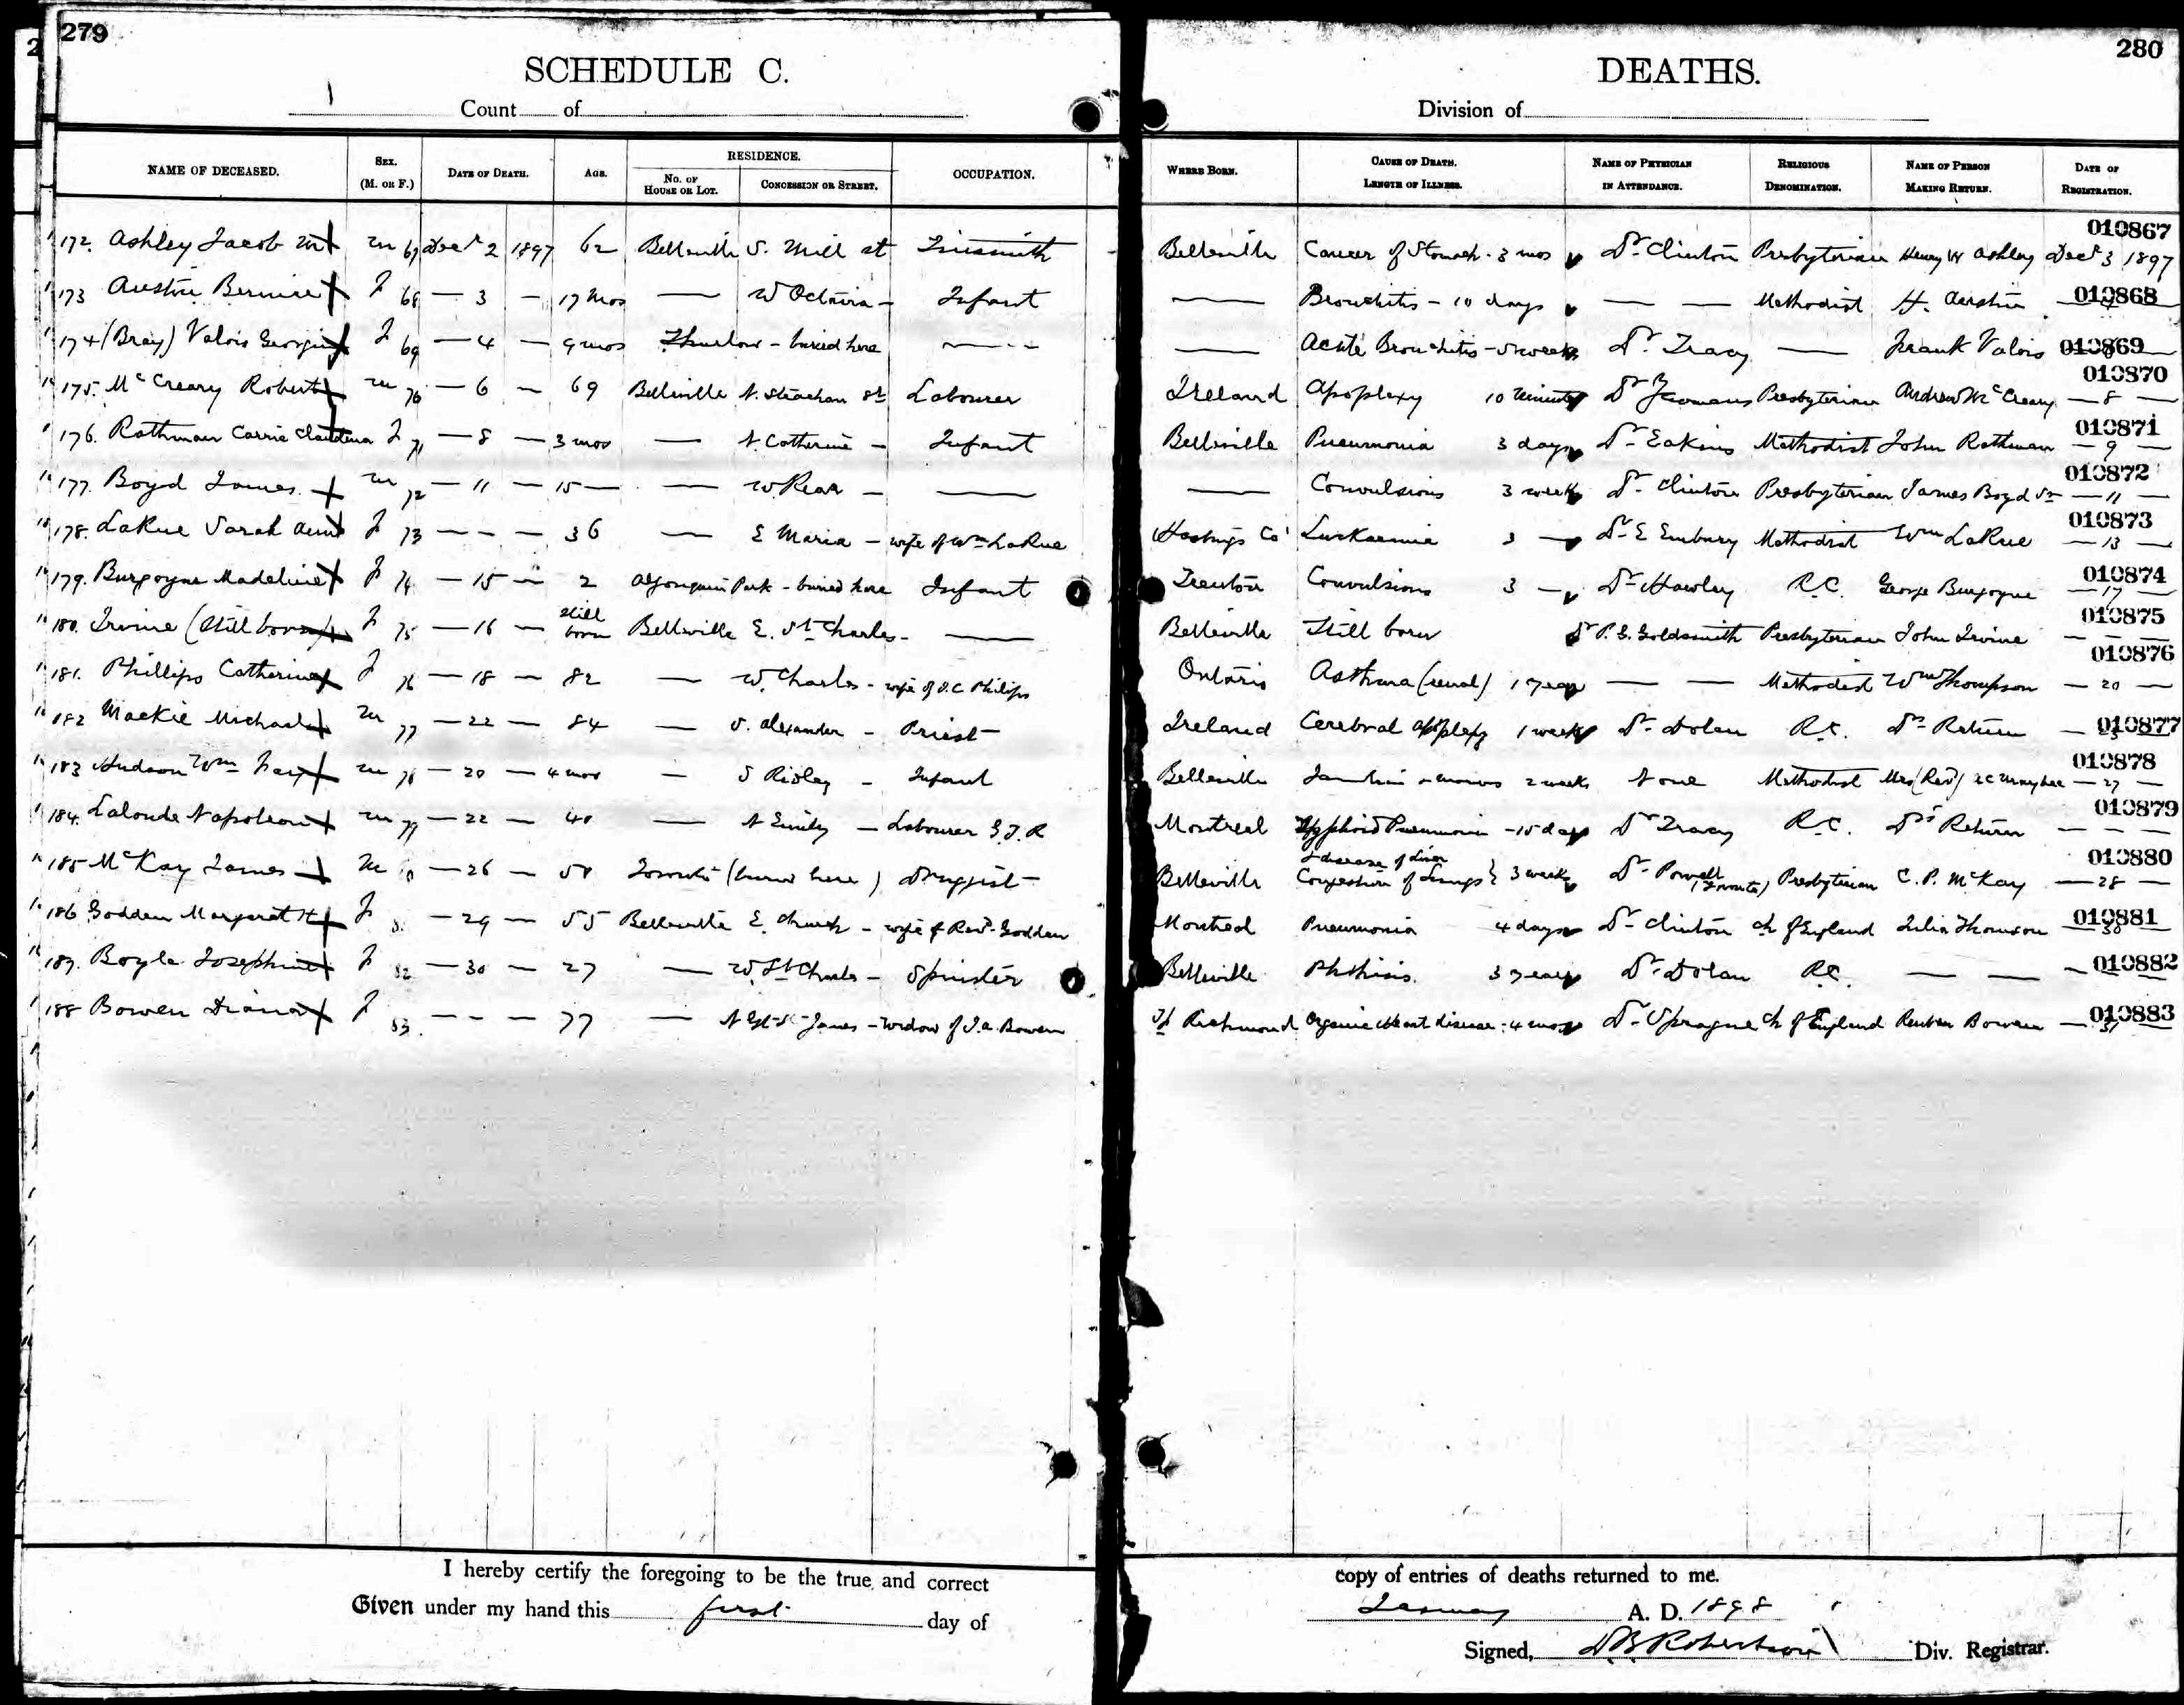 279
SCHEDULE C.
Count of
NAME OF DECEASED. SEX. (M. OR F.) DATE OF DEATH. AGE. RESIDENCE. No. OF HOUSE OR LOT. CONCESSION OR STREET. OCCUPATION.
172. Ashley Jacob M 67 Decr 2 1897 62 Belleville S. Mill st Tinsmith
173 Austin Bernice F 68 — 3 — 17 mos — W Octavia — Infant
174 (Bray) Valois F 69 — 4 — 9 mos Thurlow - buried here —
175. McCreary Robert M 70 — 6 — 69 Belleville N. Strachan St Labourer
176. Rathman Carrie F 71 — 8 — 3 mos — N Catherine — Infant
177. Boyd James M 72 — 11 — 15 — — W. Rear — —
178. LaRue Sarah Ann F 73 — - — 36 — E Maria — wife of Wm LaRue
179. Burgoyne Madeline F 74 — 15 — 2 Algonquin Park - buried here Infant
180. Irvine (Still born) F 75 — 16 — Still born Belleville E. St Charles - —
181. Phillips Catherine F 76 — 18 — 82 — W. Charles - wife of J.C Philips
182 Mackie Michael M 77 — 22 — 84 — S. Alexander — Priest
183 Hudson Wm M 78 — 20 — 4 mos — S Ridley — Infant
184. Lalonde Napoleon M 79 — 22 — 40 — N Emily — Labourer G.T.R
185 McKay James M — 26 — Toronto (buried here) Druggist
186 Godden Margaret H F — 29 — 55 Belleville E. Church - wife of Revd Godden
187. Boyle Josephine F 82 — 30 — 27 — W. St Charles - Spinster
188 Bowen Diana F 83. — - — 77 — James - Widow of J.A. Bowen
I hereby certify the foregoing to be the true and correct
Given under my hand this first day of
280
DEATHS.
Division of
WHERE BORN. CAUSE OF DEATH. LENGTH OF ILLNESS. NAME OF PHYSICIAN IN ATTENDANCE. RELIGIOUS DENOMINATION. NAME OF PERSON MAKING RETURN. DATE OF REGISTRATION.
010867
Belleville Cancer of Stomach - 3 mos Dr Clinton Presbyterian Henry W Ashley Decr 3 1897
— Bronchitis - 10 days — — Methodist H. Austin 010868
— Acute Bronchitis - 5 weeks Dr. Tracy — Frank Valois 010869
010870
Ireland Apoplexy 10 minutes Dr Yeomans Presbyterian Andrew McCreary — 8 —
010871
Belleville Pneumonia 3 days Dr Eakins Methodist John Rathman — 9 —
010872
— Convulsions 3 weeks Dr Clinton Presbyterian James Boyd Sr — 11 —
010873
Hastings Co Leukaemia 3 — Dr E Embury Methodist Wm LaRue — 13 —
010874
Trenton Convulsions 3 — Dr Hawley R.C. George Burgoyne — 17 —
010875
Belleville Still born Dr P. G. Goldsmith Presbyterian John Irvine — — —
010876
Ontario Asthma (renal) 1 year — — Methodist Wm Thompson — 20 —
Ireland Cerebral apoplexy 1 week Dr Dolan R.C. Drs Return — 010877
010878
Belleville 2 weeks None Methodist Mrs (Rev) — 27 —
010879
Montreal Typhoid Pneumonia - 15 days Dr Tracy R.C. Drs Return — — —
010880
Belleville & disease of Liver Congestion of Lungs } 3 weeks Dr Powell (Toronto) Presbyterian C. P. McKay — 28 —
Montreal Pneumonia 4 days Dr Clinton Ch of England Julia Thomson 010881
Belleville Phthisis. 3 years Dr Dolan R.C. — — — 010882
Richmond Organic Heart disease : 4 mos Dr Sprague Ch of England Reuben Bowen — 31 010883
copy of entries of deaths returned to me.
January A. D. 1898
Signed, D B Robertson Div. Registrar.